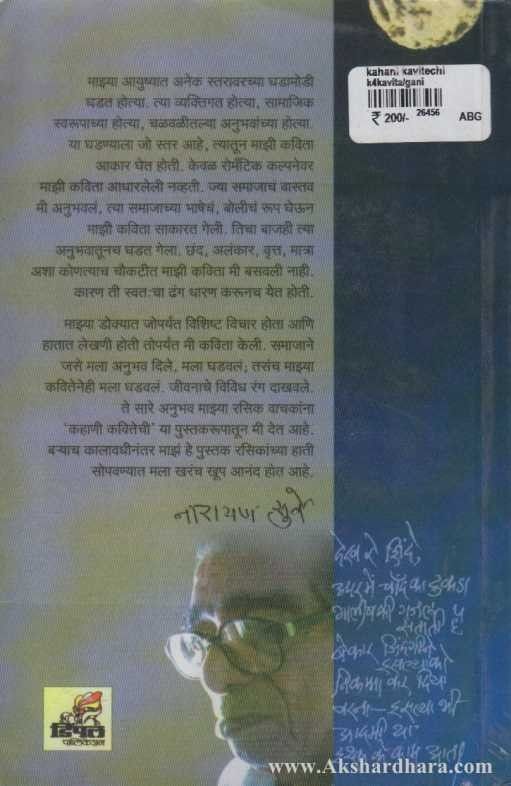 kahani kavitechi
k4kavita/gani
₹ 200/- 26456 ABG
माझ्या आयुष्यात अनेक स्तरावरच्या घडामोडी
घडत होत्या. त्या व्यक्तिगत होत्या, सामाजिक
स्वरूपाच्या होत्या, चळवळीतल्या अनुभवांच्या होत्या.
या घडण्याला जो स्तर आहे, त्यातून माझी कविता
आकार घेत होती. केवळ रोमँटिक कल्पनेवर
माझी कविता आधारलेली नव्हती. ज्या समाजाचं वास्तव
मी अनुभवलं, त्या समाजाच्या भाषेचं, बोलीचं रूप घेऊन
माझी कविता साकारत गेली. तिचा बाजही त्या
अनुभवातूनच घडत गेला. छंद, अलंकार, वृत्त, मात्रा
अशा कोणत्याच चौकटीत माझी कविता मी बसवली नाही.
कारण ती स्वतःचा ढंग धारण करूनच येत होती.
माझ्या डोक्यात जोपर्यंत विशिष्ट विचार होता आणि
हातात लेखणी होती तोपर्यंत मी कविता केली. समाजाने
जसे मला अनुभव दिले, मला घडवलं; तसंच माझ्या
कवितेनेही मला घडवलं. जीवनाचे विविध रंग दाखवले.
ते सारे अनुभव माझ्या रसिक वाचकांना
'कहाणी कवितेची' या पुस्तकरूपातून मी देत आहे.
बऱ्याच कालावधीनंतर माझं हे पुस्तक रसिकांच्या हाती
सोपवण्यात मला खरंच खूप आनंद होत आहे.
नारायण सुर्वे
देख रे शिंदे,
उपर में चाँद का टुकडा
गालीब की गजल
सताती है
बेकार जिंदगीने
इसल्या को
निकम्मा कर दिया
वरना - इसल्या भी
आदमी था
के काम आता।
डिंपल
पब्लिकेशन
www.Akshardhara.com